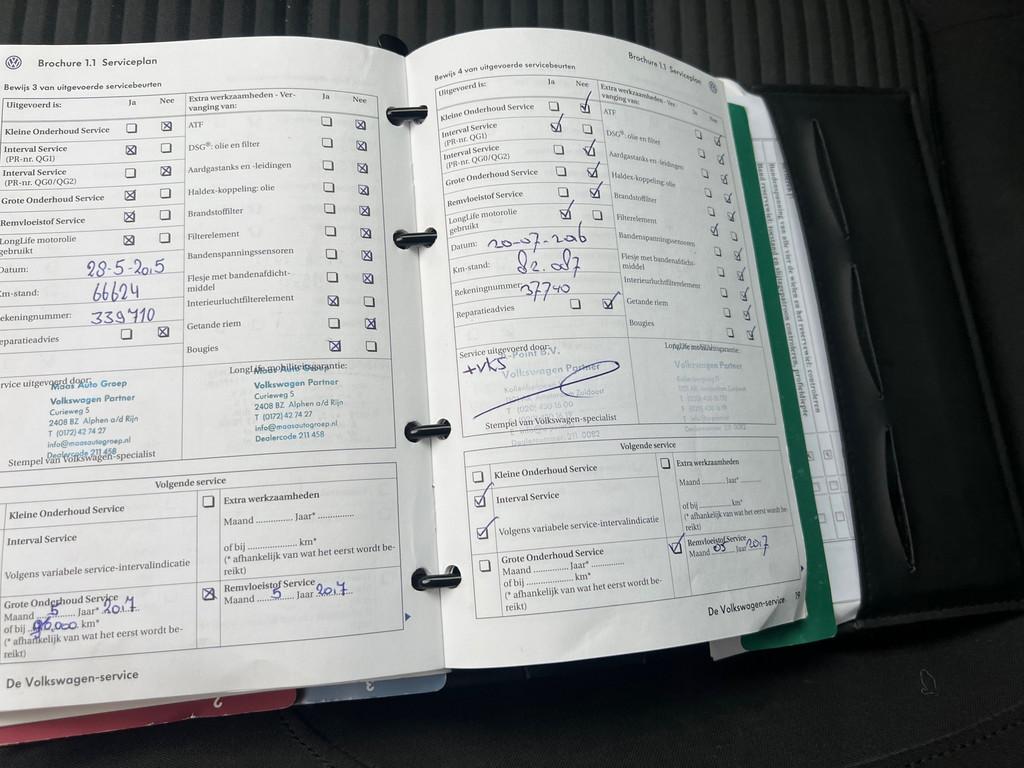 Brochure 1.1 Serviceplan
Bewijs 3 van uitgevoerde servicebeurten
Uitgevoerd is: Ja Nee
Kleine Onderhoud Service
Interval Service
(PR-nr. QG1)
Interval Service
(PR-nr. QG0/QG2)
Grote Onderhoud Service
Remvloeistof Service
LongLife motorolie
gebruikt
Datum: 28-5-2015
Km-stand: 66624
Rekeningnummer: 339710
Reparatieadvies
Extra werkzaamheden - Ver-
vanging van: Ja Nee
ATF
DSG®: olie en filter
Aardgastanks en -leidingen
Haldex-koppeling: olie
Brandstoffilter
Filterelement
Bandenspanningssensoren
Flesje met bandenafdicht-
middel
Interieurluchtfilterelement
Getande riem
Bougies
Service uitgevoerd door:
Maas Auto Groep
Volkswagen Partner
Curieweg 5
2408 BZ Alphen a/d Rijn
T (0172) 42 74 27
info@maasautogroep.nl
Dealercode 211 458
Stempel van Volkswagen-specialist
LongLife mobiliteitsgarantie:
Maas Auto Groep
Volkswagen Partner
Curieweg 5
2408 BZ Alphen a/d Rijn
T (0172) 42 74 27
info@maasautogroep.nl
Dealercode 211 458
Volgende service
Kleine Onderhoud Service
Interval Service
Volgens variabele service-intervalindicatie
Grote Onderhoud Service
Maand 5 Jaar* 2017
of bij 90.000 km*
(* afhankelijk van wat het eerst wordt be-
reikt)
Extra werkzaamheden
Maand ............. Jaar* .............
of bij .................... km*
(* afhankelijk van wat het eerst wordt be-
reikt)
Remvloeistof Service
Maand 5 Jaar 2017
De Volkswagen-service
Brochure 1.1 Serviceplan
Bewijs 4 van uitgevoerde servicebeurten
Uitgevoerd is: Ja Nee
Kleine Onderhoud Service
Interval Service
(PR-nr. QG1)
Interval Service
(PR-nr. QG0/QG2)
Grote Onderhoud Service
Remvloeistof Service
LongLife motorolie
gebruikt
Datum: 20-07-2016
Km-stand: 82.087
Rekeningnummer: 37740
Reparatieadvies
Extra werkzaamheden - Ver-
vanging van: Ja Nee
ATF
DSG®: olie en filter
Aardgastanks en -leidingen
Haldex-koppeling: olie
Brandstoffilter
Filterelement
Bandenspanningssensoren
Flesje met bandenafdicht-
middel
Interieurluchtfilterelement
Getande riem
Bougies
Service uitgevoerd door:
-Point B.V.
Volkswagen Partner
Zuidoost
T (020) 430 16 00
Dealernummer: 211 0082
Stempel van Volkswagen-specialist
LongLife mobiliteitsgarantie:
Volkswagen Partner
Volgende service
Kleine Onderhoud Service
Interval Service
Volgens variabele service-intervalindicatie
Grote Onderhoud Service
Maand ............. Jaar* .............
of bij .................... km*
(* afhankelijk van wat het eerst wordt be-
reikt)
Extra werkzaamheden
Maand ............. Jaar* .............
of bij .................... km*
(* afhankelijk van wat het eerst wordt be-
reikt)
Remvloeistof Service
Maand 05 Jaar 2017
De Volkswagen-service 19